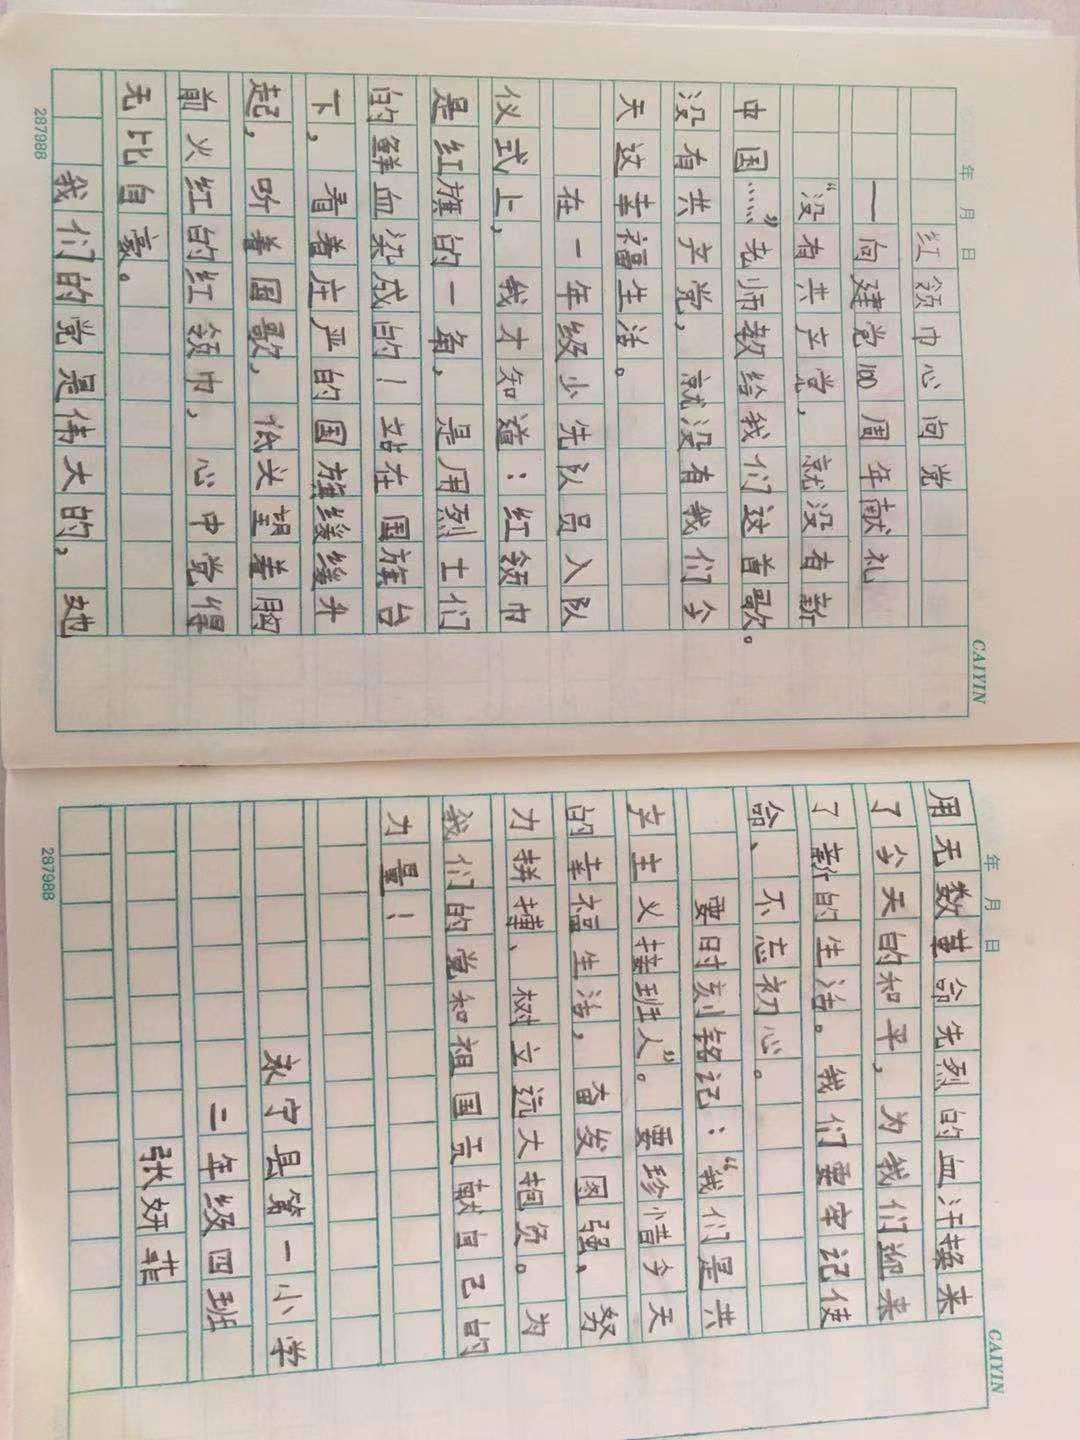 年 月 日
红领巾心向党
——向建党100周年献礼
“没有共产党，就没有新
中国……”老师教给我们这首歌。
没有共产党，就没有我们今
天这幸福生活。
在一年级少先队员入队
仪式上，我才知道：红领巾
是红旗的一角，是用烈士们
的鲜血染成的！站在国旗台
下，看着庄严的国旗缓缓升
起，听着国歌，低头望着胸
前火红的红领巾，心中觉得
无比自豪。
我们的党是伟大的，她
287988
CAIYIN
年 月 日
用无数革命先烈的血汗换来
了今天的和平，为我们迎来
了新的生活。我们要牢记使
命、不忘初心。
要时刻铭记：“我们是共
产主义接班人”。要珍惜今天
的幸福生活，奋发图强，努
力拼搏、树立远大抱负。为
我们的党和祖国贡献自己的
力量！
永宁县第一小学
二年级四班
张妍菲
287988
CAIYIN